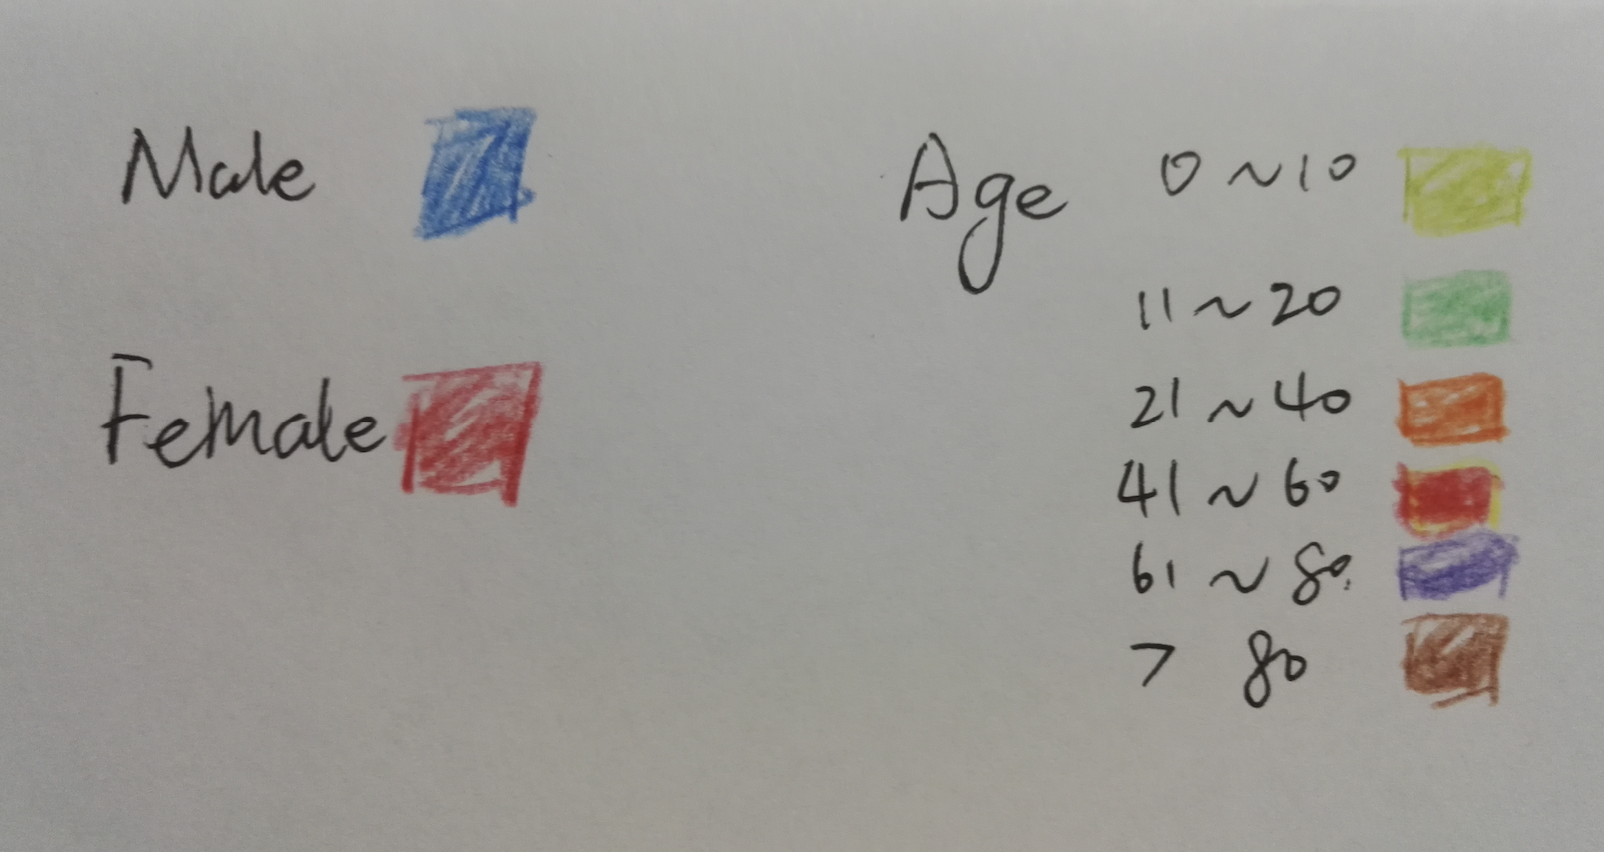 Male
Female
Age 0~10
11~20
21~40
41~60
61~80
> 80